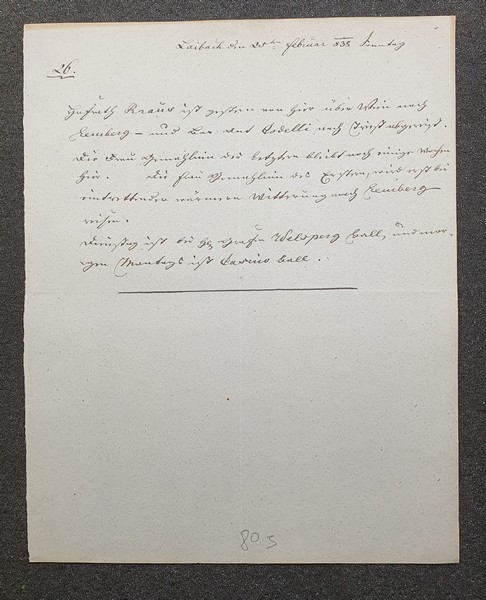 Laibach den 25ten Februar 838 Sonntag
26.
Hofrath Kraus ist gestern von hier über Wien nach
Lemberg – und Bar. Ant Codelli nach Triest abgereist.
Die Frau Gemahlinn des Letztern bleibt noch einige Wochen
hier. Die Frau Gemahlinn des Erstern, wird erst bei
eintrettender wärmern Witterung nach Lemberg
reisen.
Dienstag ist bei H Grafen Welsperg Ball, und mor-
gen Montags ist Casino Ball.
80 5